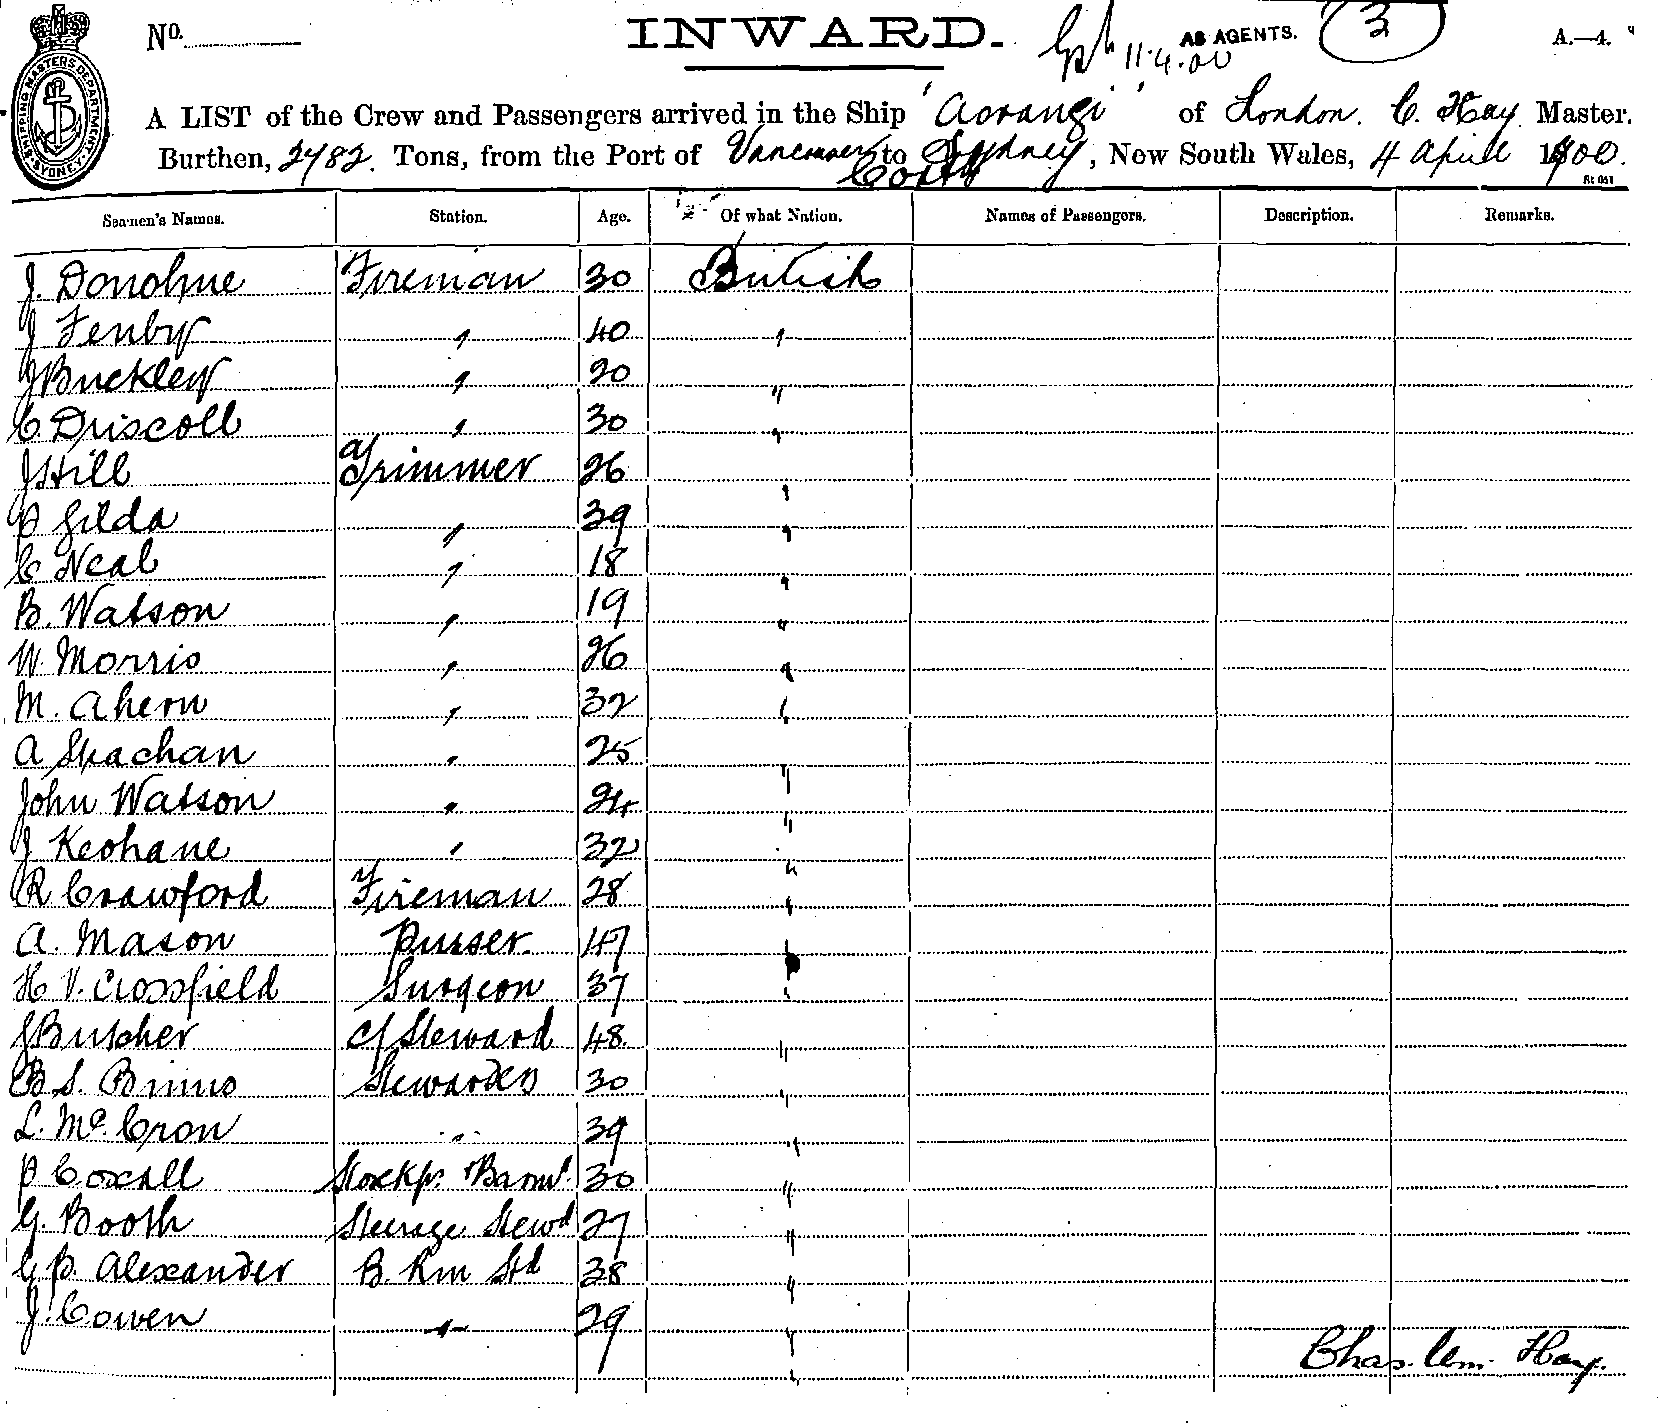 No. INWARD. AS AGENTS. 3 A.—4.
11.4.00
SHIPPING MASTERS DEPARTMENT SYDNEY
A LIST of the Crew and Passengers arrived in the Ship 'Aorangi' of London. C. Hay Master.
Burthen, 2782. Tons, from the Port of Vancouver to Sydney, New South Wales, 4 April 1900.
Seamen's Names. Station. Age. Of what Nation. Names of Passengers. Description. Remarks.
J. Donohue Fireman 30 British
J Fenby " 40 "
J Buckley " 20 "
C Driscoll " 30 "
J Hill Trimmer 26 "
P Gilda " 39 "
C Neal " 18 "
B. Watson " 19 "
W. Morris " 26 "
M. Ahern " 32 "
A Strachan " 25 "
John Watson " 24 "
J Keohane " 32 "
R Crawford Fireman 28 "
A. Mason Purser 47 "
H V. Crossfield Surgeon 37 "
J Butcher Cf Steward 48 "
B S. Binns Stewardess 30 "
L. McCron " 39 "
P Coxall Storekpr Barmn 30 "
G. Booth Steerage Stewd 27 "
G P. Alexander B. Rm Std 38 "
J. Cowen " 29 "
Chas. Wm. Hay.